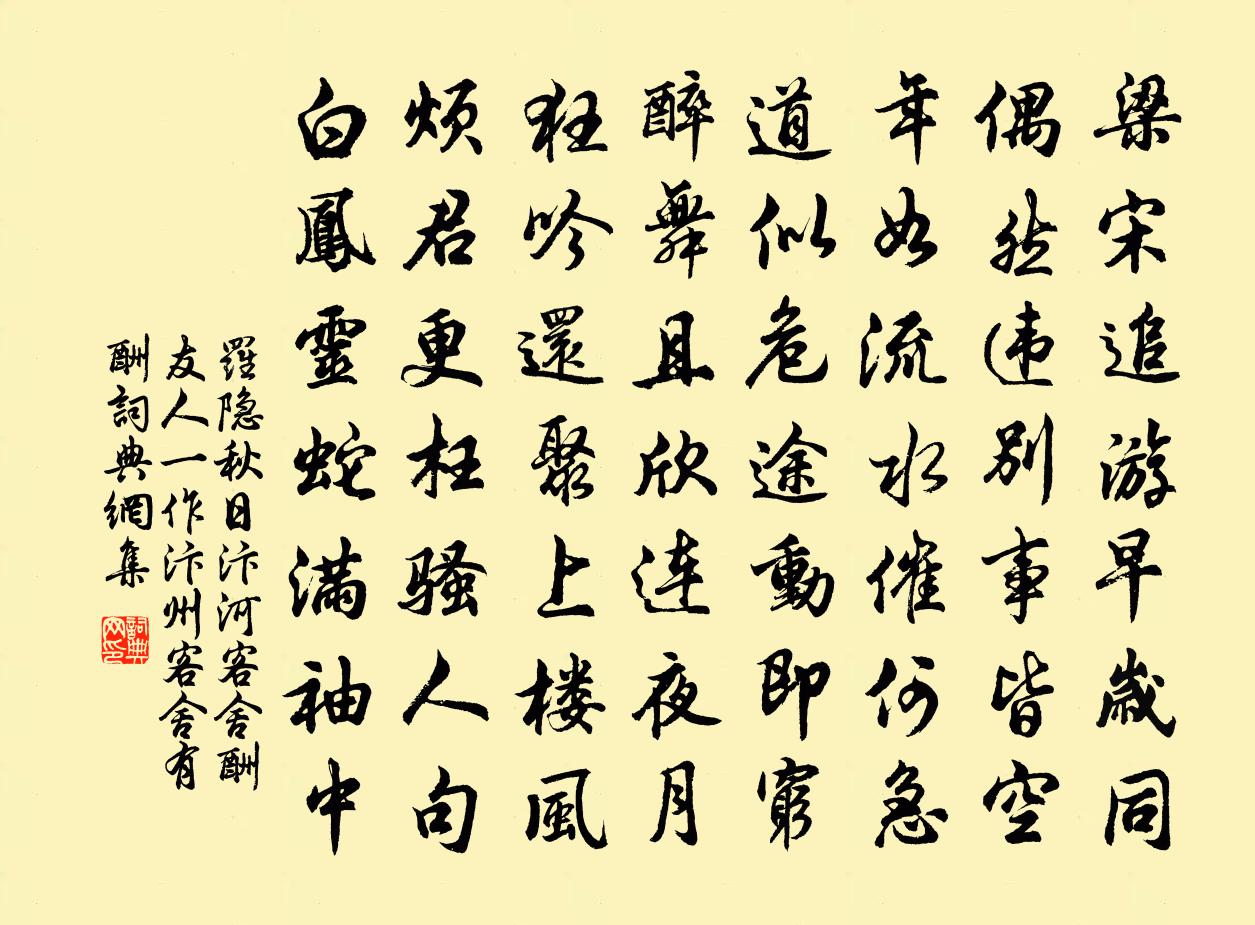 梁宋追游早歲同
偶然违別事皆空
年如流水催何急
道似危途動即窮
醉舞且欣连夜月
狂吟還聚上楼風
烦君更枉骚人句
白鳳靈蛇满袖中
羅隐秋日汴河客舍酬
友人一作汴州客舍有
酬詞典網集
詞典网印